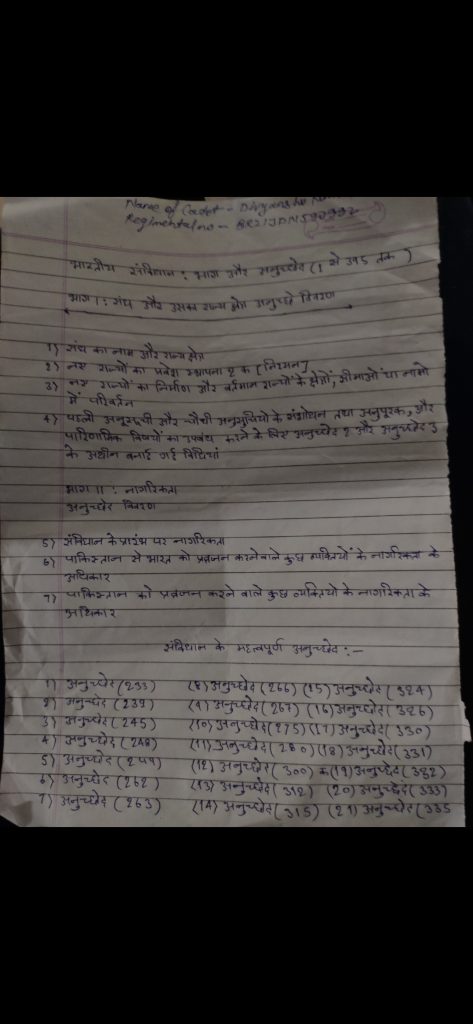 Name of Cadet - Divyanshu
Regimental no -
भारतीय संविधान : भाग और अनुच्छेद (1 से 395 तक)
भाग I : संघ और उसका राज्य क्षेत्र अनुच्छे विवरण
1) संघ का नाम और राज्य क्षेत्र
2) नए राज्यों का प्रवेश स्थापना 2 क [निरसन]
3) नए राज्यों का निर्माण और वर्तमान राज्यों के क्षेत्रों, सीमाओं या नामो
में परिवर्तन
4) पहली अनुसूची और चौथी अनुसूचियों के संशोधन तथा अनुपूरक, और
पारिणामिक विषयों का उपबंध करने के लिए अनुच्छेद 2 और अनुच्छेद 3
के अधीन बनाई गई विधियां
भाग II : नागरिकता
अनुच्छेद विवरण
5) संविधान के प्रारंभ पर नागरिकता
6) पाकिस्तान से भारत को प्रव्रजन करने वाले कुछ व्यक्तियों के नागरिकता के
अधिकार
7) पाकिस्तान को प्रव्रजन करने वाले कुछ व्यक्तियो के नागरिकता के
अधिकार
संविधान के महत्वपूर्ण अनुच्छेद :-
1) अनुच्छेद (233) (8) अनुच्छेद (266) (15) अनुच्छेद (324)
2) अनुच्छेद (239) (9) अनुच्छेद (267) (16) अनुच्छेद (326)
3) अनुच्छेद (245) (10) अनुच्छेद (275) (17) अनुच्छेद (330)
4) अनुच्छेद (248) (11) अनुच्छेद (280) (18) अनुच्छेद (331)
5) अनुच्छेद (249) (12) अनुच्छेद (300) क (19) अनुच्छेद (332)
6) अनुच्छेद (262) (13) अनुच्छेद (312) (20) अनुच्छेद (333)
7) अनुच्छेद (263) (14) अनुच्छेद (315) (21) अनुच्छेद (335